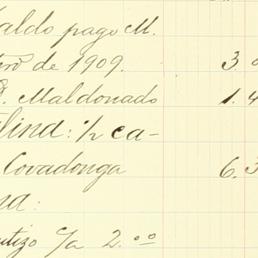 aldo pago M.
bro de 1909. 3.
D. Maldonado 1.4
lina: ½ ca-
Covadonga 6.3
na:
utizo c/a 2.00